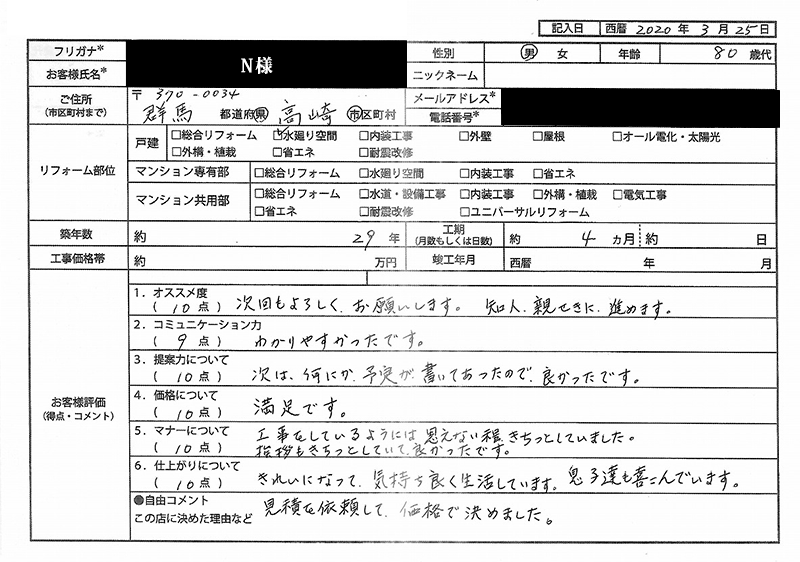 記入日 西暦 2020 年 3 月 25 日
フリガナ*
お客様氏名* N様
性別 男 女 年齢 80 歳代
ニックネーム
ご住所 (市区町村まで) 〒 370-0034
群馬 都道府県 高崎 市区町村
メールアドレス*
電話番号*
リフォーム部位
戸建 □総合リフォーム □水廻り空間 □内装工事 □外壁 □屋根 □オール電化・太陽光
□外構・植栽 □省エネ □耐震改修
マンション専有部 □総合リフォーム □水廻り空間 □内装工事 □省エネ
マンション共用部 □総合リフォーム □水道・設備工事 □内装工事 □外構・植栽 □電気工事
□省エネ □耐震改修 □ユニバーサルリフォーム
築年数 約 29 年 工期 (月数もしくは日数) 約 4 カ月 約 日
工事価格帯 約 万円 竣工年月 西暦 年 月
お客様評価 (得点・コメント)
1. オススメ度
( 10 点 ) 次回もよろしく、お願いします。 知人、親せきに、進めます。
2. コミュニケーション力
( 9 点 ) わかりやすかったです。
3. 提案力について
( 10 点 ) 次は、何にか、予定が、書いてあったので、良かったです。
4. 価格について
( 10 点 ) 満足です。
5. マナーについて
( 10 点 ) 工事をしているようには思えない程、きちっとしていました。
挨拶もきちっとしていて、良かったです。
6. 仕上がりについて
( 10 点 ) きれいになって、気持ち良く生活しています。息子達も喜こんでいます。
●自由コメント
この店に決めた理由など 見積を依頼して、価格で決めました。